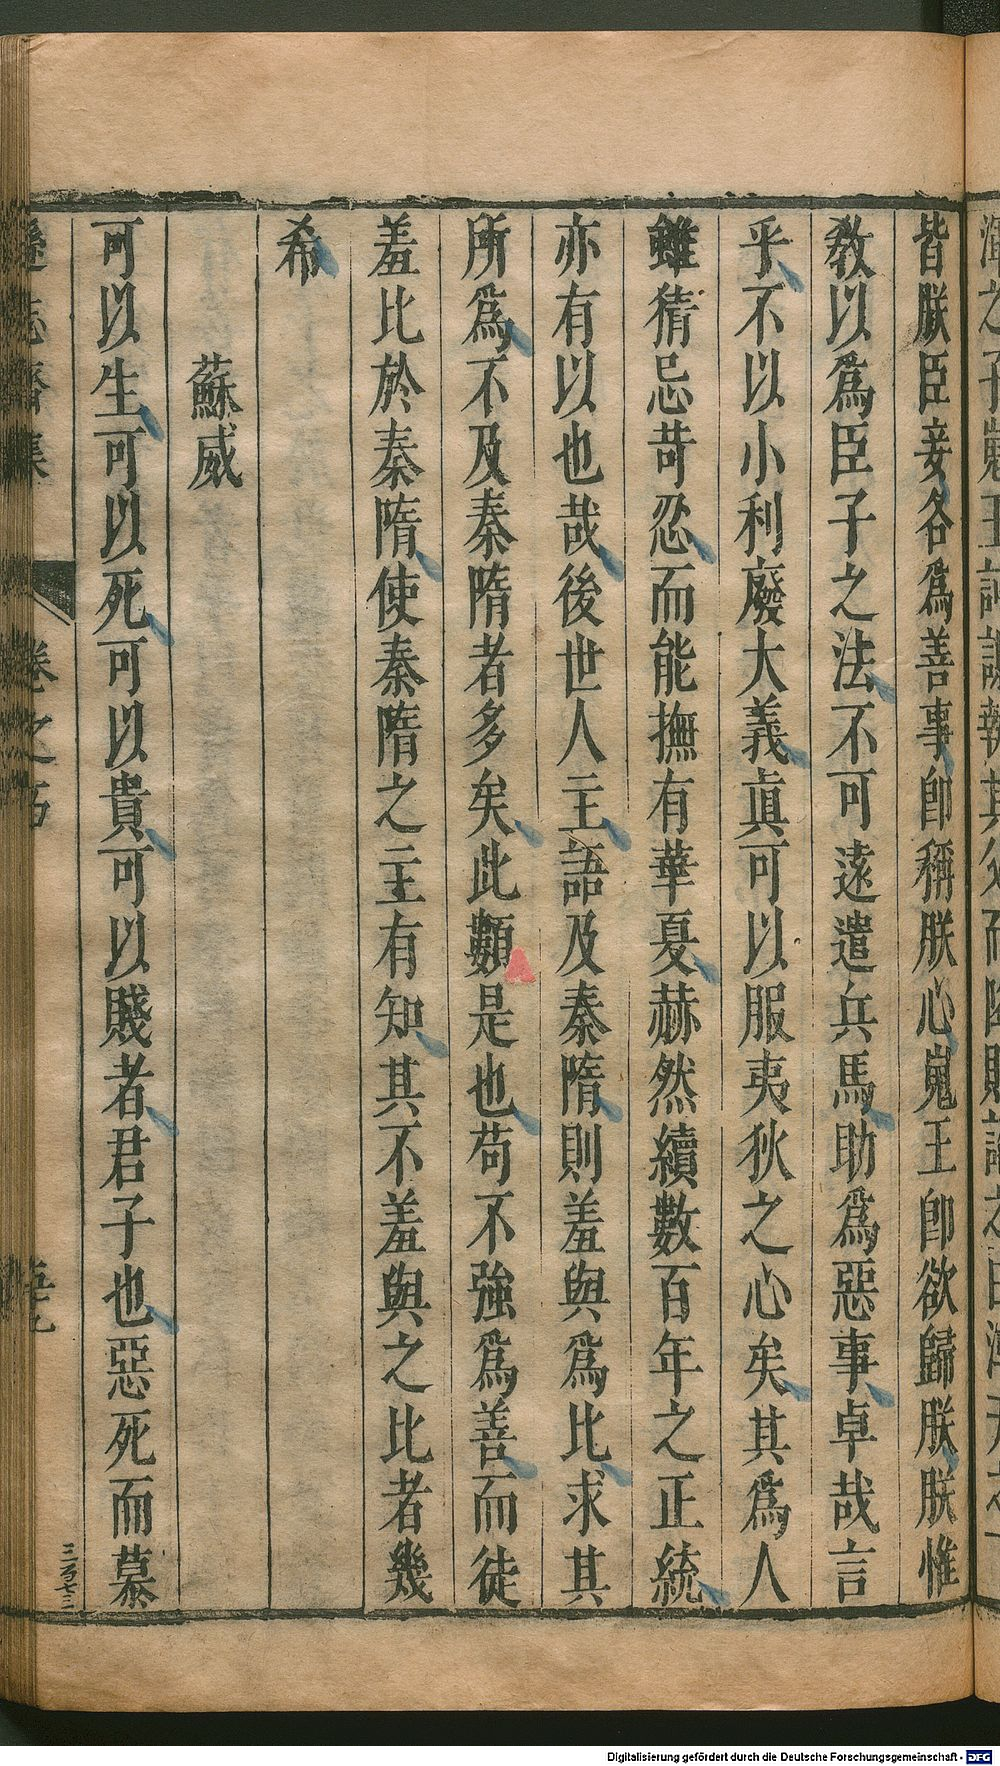 皆朕臣妾各爲善事卽稱朕心嵬王卽欲歸朕朕惟
敎以爲臣子之法不可遠遣兵馬助爲惡事卓哉言
乎不以小利廢大義眞可以服夷狄之心矣其爲人
雖猜忌苛忍而能撫有華夏赫然續數百年之正統
亦有以也哉後世人主語及秦隋則羞與爲比求其
所爲不及秦隋者多矣此顙是也苟不強爲善而徒
羞比於秦隋使秦隋之主有知其不羞與之比者幾
希
蘇威
可以生可以死可以貴可以賤者君子也惡死而慕
遜志齋集
卷之五
五十九
三百七三
Digitalisierung gefördert durch die Deutsche Forschungsgemeinschaft - DFG